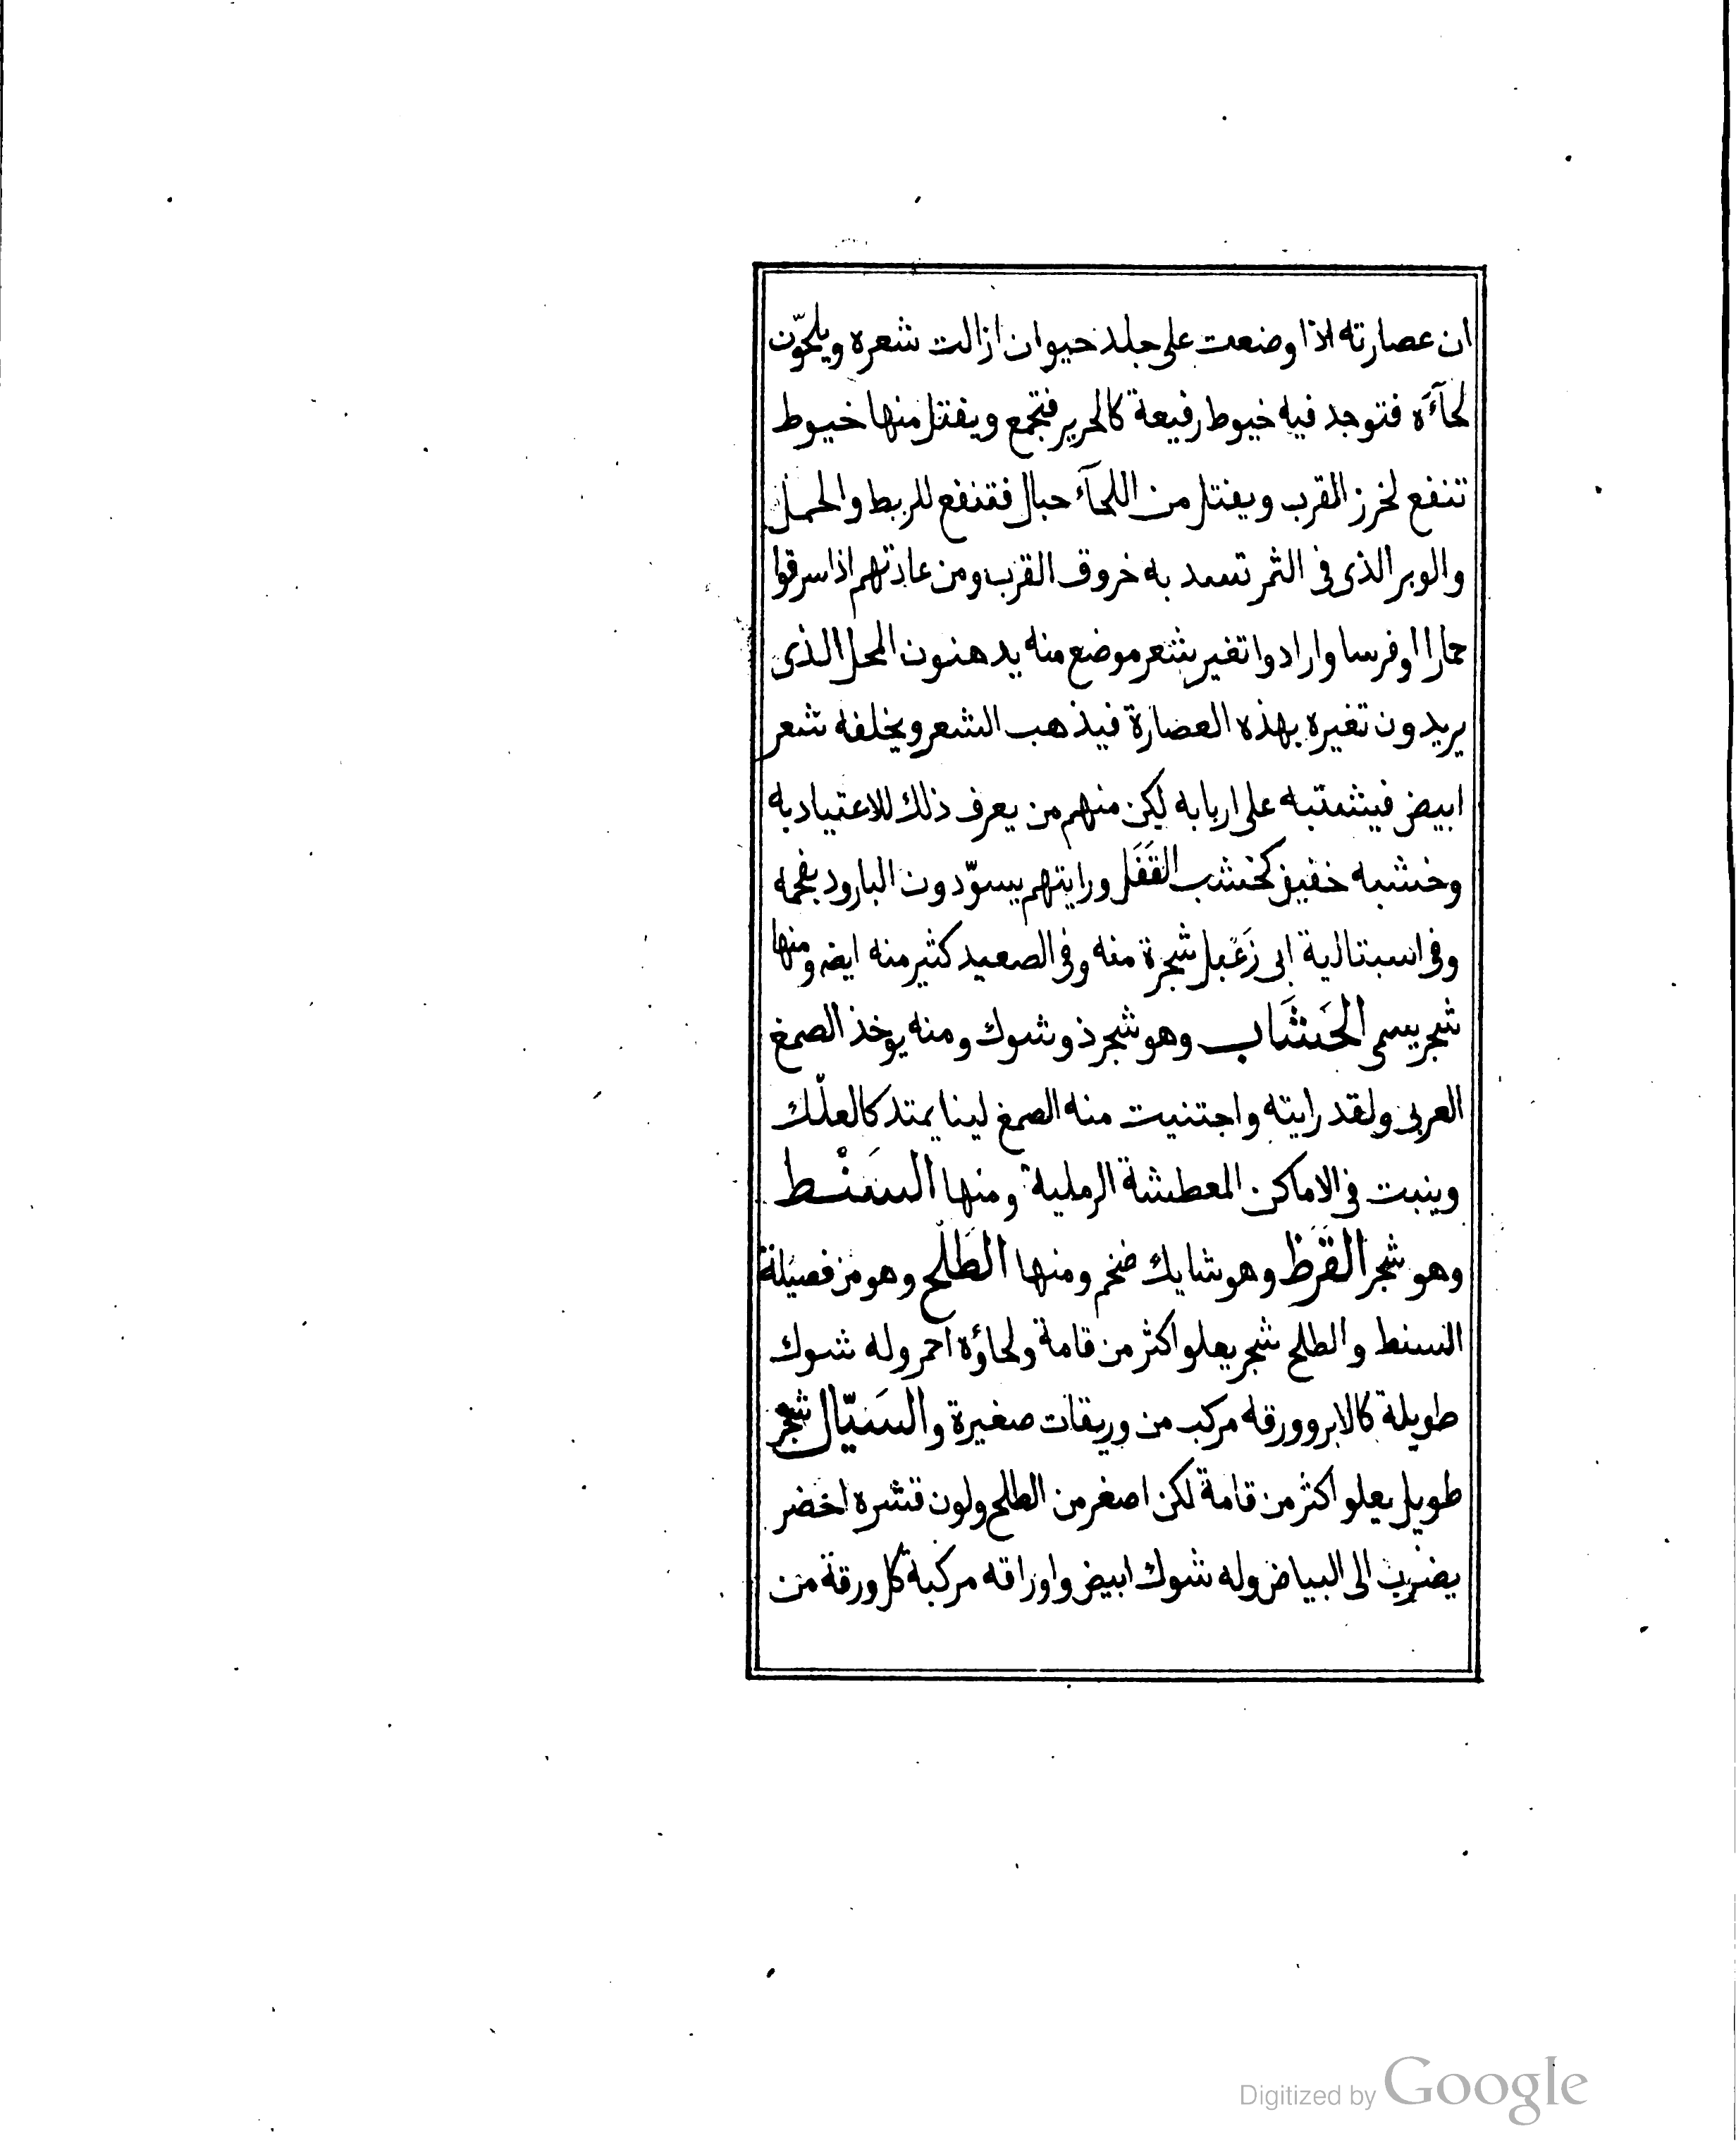 ان عصارته اذا وضعت على جلد حيوان ازالت شعره ويلحّون
لحآءَه فتوجد فيه خيوط رفيعة كالحرير فتجمع ويفتل منها خيوط
تنفع لخرز القرب ويفتل من اللحآء حبال فتنفع للربط والحمل
والوبر الذى فى الثمر تسد به خروق القرب ومن عادتهم اذا سرقوا
حمارا اوفرسا وارادوا تغير شعر موضع منه يدهنون المحل الذى
يريدون تغيره بهذه العصارة فيذهب الشعر ويخلفه شعر
ابيض فيشتبه على اربابه لكن منهم من يعرف ذلك للاعتياد به
وخشبه خفيف كخشب القَفَل ورايتهم يسوّدون البارود بفحمه
وفى اسبتالية ابى زَعْبل شجرة منه وفى الصعيد كثير منه ايضه ومنها
شجر يسمى الحَشَاب وهو شجر ذو شوك ومنه يوخذ الصمغ
العربى ولقد رايته واجتنيت منه الصمغ لينا يمتد كالعلّك
وينبت فى الاماكن المعطشة الرملية ومنها السَنْط
وهو شجر القَرَظ وهو شايك ضخم ومنها الطَلْح وهو من فصيلة
السنط والطلح شجر يعلو اكثر من قامة ولحاؤه احمر وله شوك
طويلة كالابر وورقه مركب من وريقات صغيرة والسَيّال شجر
طويل يعلو اكثر من قامة لكن اصغر من الطلح ولون قشره اخضر
يضرب الى البياض وله شوك ابيض واوراقه مركبة كل ورقة من
Digitized by Google